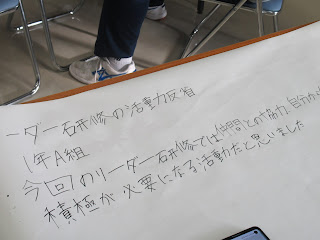 ーダー研修の活動反省
1年A組
今回のリーダー研修では仲間との協力、自分から
積極が必要になる活動だと思いました